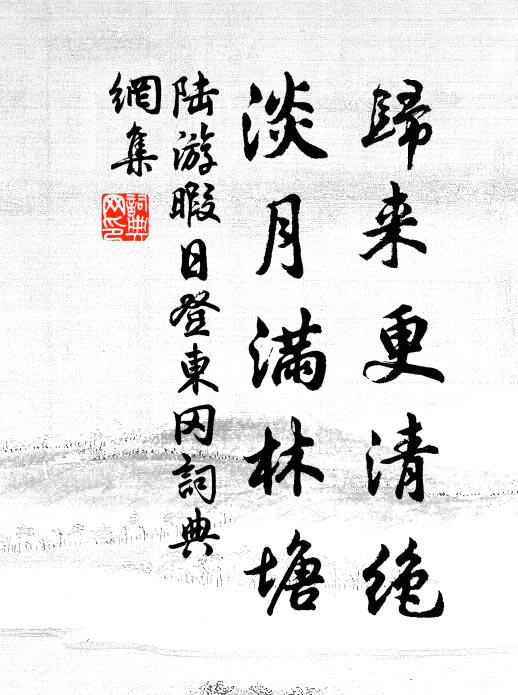 歸来更清绝
淡月满林塘
陆游暇日登東冈詞典
網集
詞典
网印